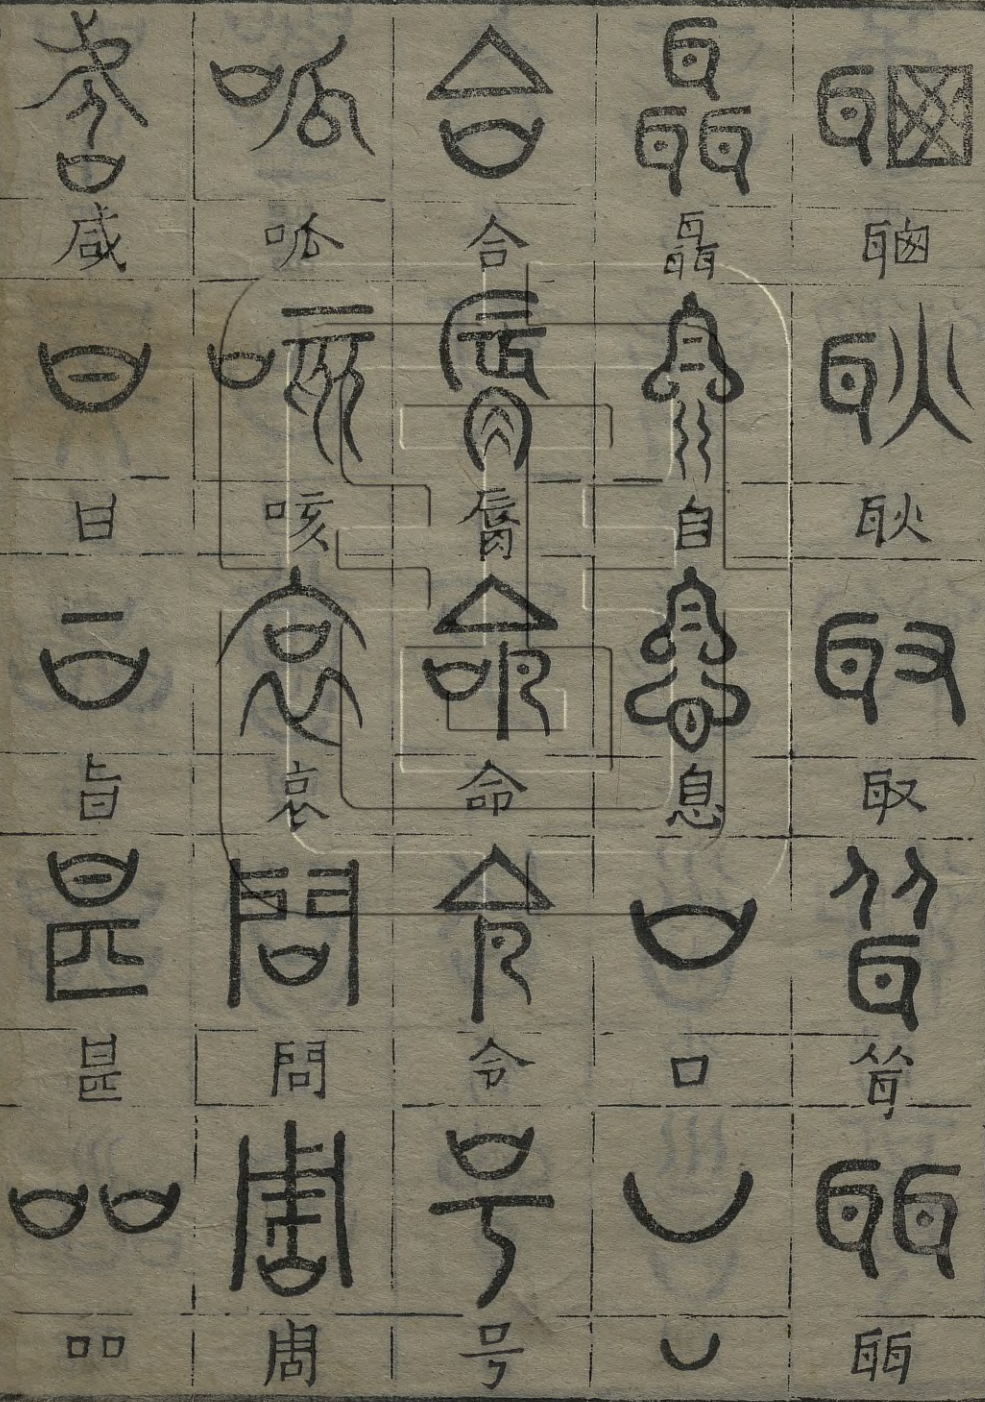 耿取聑
聶自息口凵
合脣命令号
呱咳哀問周
咸甘旨甚吅